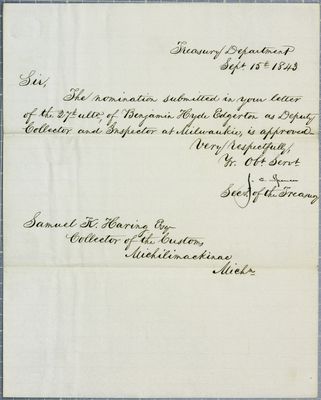 Treasury Department
Sept 15th 1843
Sir,
The nomination submitted in your letter
of the 27th ulto, of Benjamin Hyde Edgerton as Deputy
Collector and Inspector at Milwaukie, is approved
Very Respectfully,
Yr. Obt Servt
J. C. Spencer
Secy of the Treasury
Samuel K. Haring Esq
Collector of the Customs
Michilimackinac
Michn